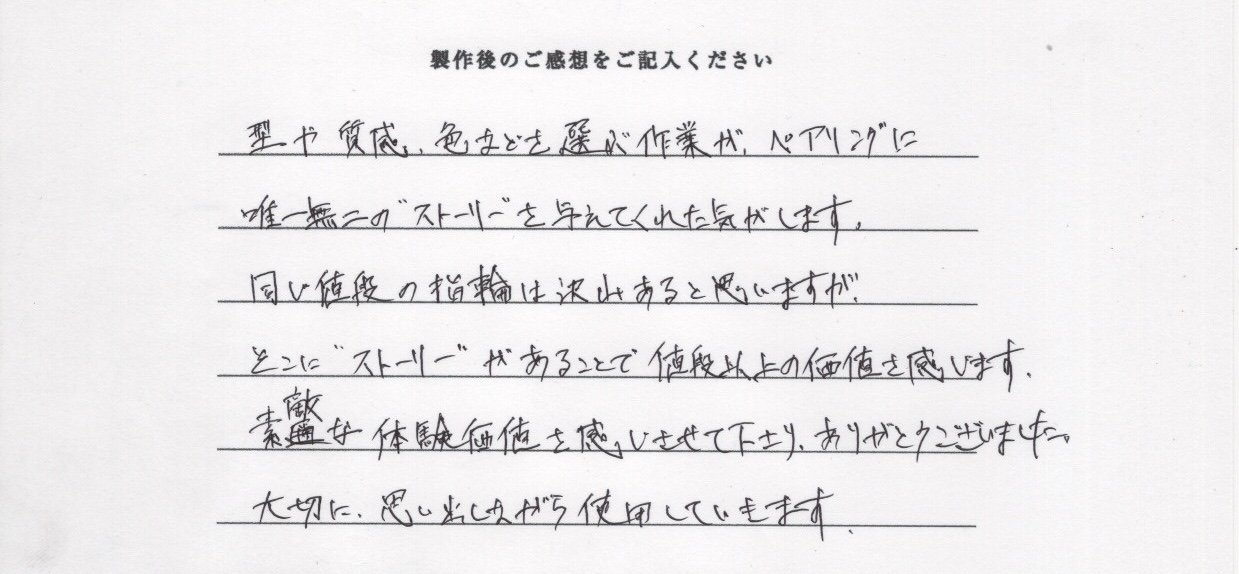 製作後のご感想をご記入ください
型や質感、色などを選ぶ作業が、ペアリングに
唯一無二の"ストーリー"を与えてくれた気がします。
同じ値段の指輪は沢山あると思いますが、
そこに"ストーリー"があることで値段以上の価値を感じます。
素敵な体験価値を感じさせて下さり、ありがとうございました。
大切に、思い出しながら使用していきます。